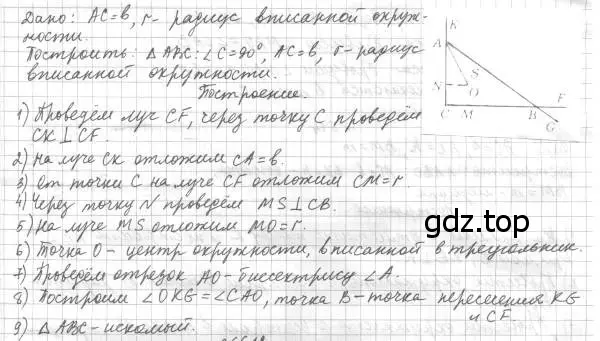 Дано: AC=b, r- радиус вписанной окруж-
ности.
Построить: △ABC: ∠C=90°, AC=b, r-радиус
вписанной окружности.
Построение.
1) Проведём луч CF, через точку C проведём
CK⊥CF.
2) На луче CK отложим CA=b.
3) От точки C на луче CF отложим CM=r.
4) Через точку N проведём MS⊥CB.
5) На луче MS отложим MO=r.
6) Точка O- центр окружности, вписанной в треугольник.
7) Проведём отрезок AO-биссектрису ∠A.
8) Построим ∠OKG=∠CAO, точка B-точка пересечения KG
и CF
9) △ABC-искомый.
K
A
S
N
O
C M B F
G
gdz.top